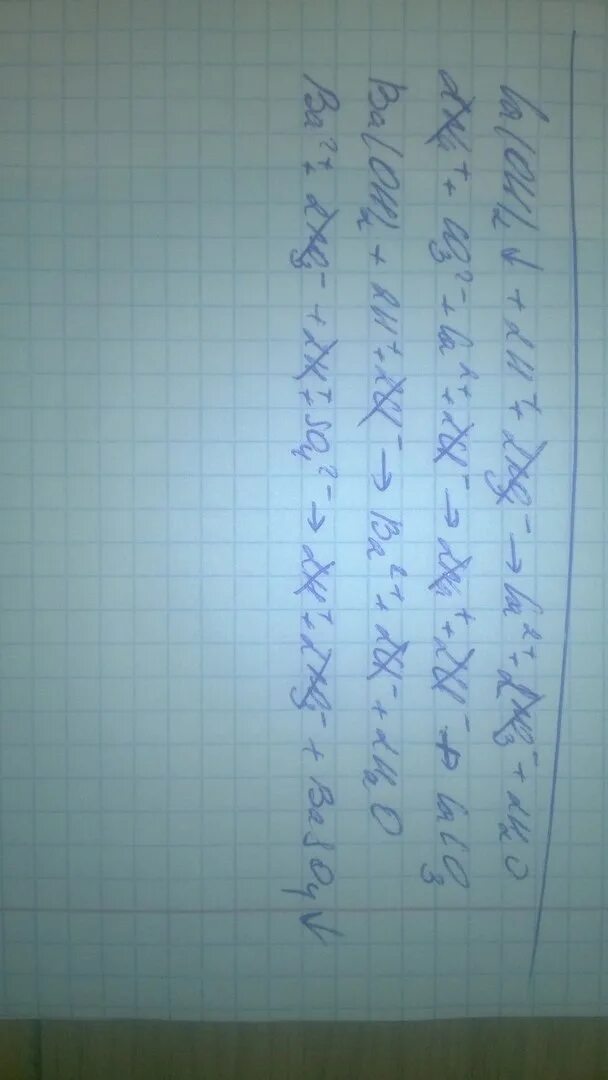 Ca(OH)₂↓ + 2H⁺ + 2NO₃⁻ → Ca²⁺ + 2NO₃⁻ + 2H₂O
2Na⁺ + CO₃²⁻ + Ca²⁺ + 2Cl⁻ → 2Na⁺ + 2Cl⁻ + CaCO₃
Ba(OH)₂ + 2H⁺ + 2Cl⁻ → Ba²⁺ + 2Cl⁻ + 2H₂O
Ba²⁺ + 2NO₃⁻ + 2H⁺ + SO₄²⁻ → 2H⁺ + 2NO₃⁻ + BaSO₄↓